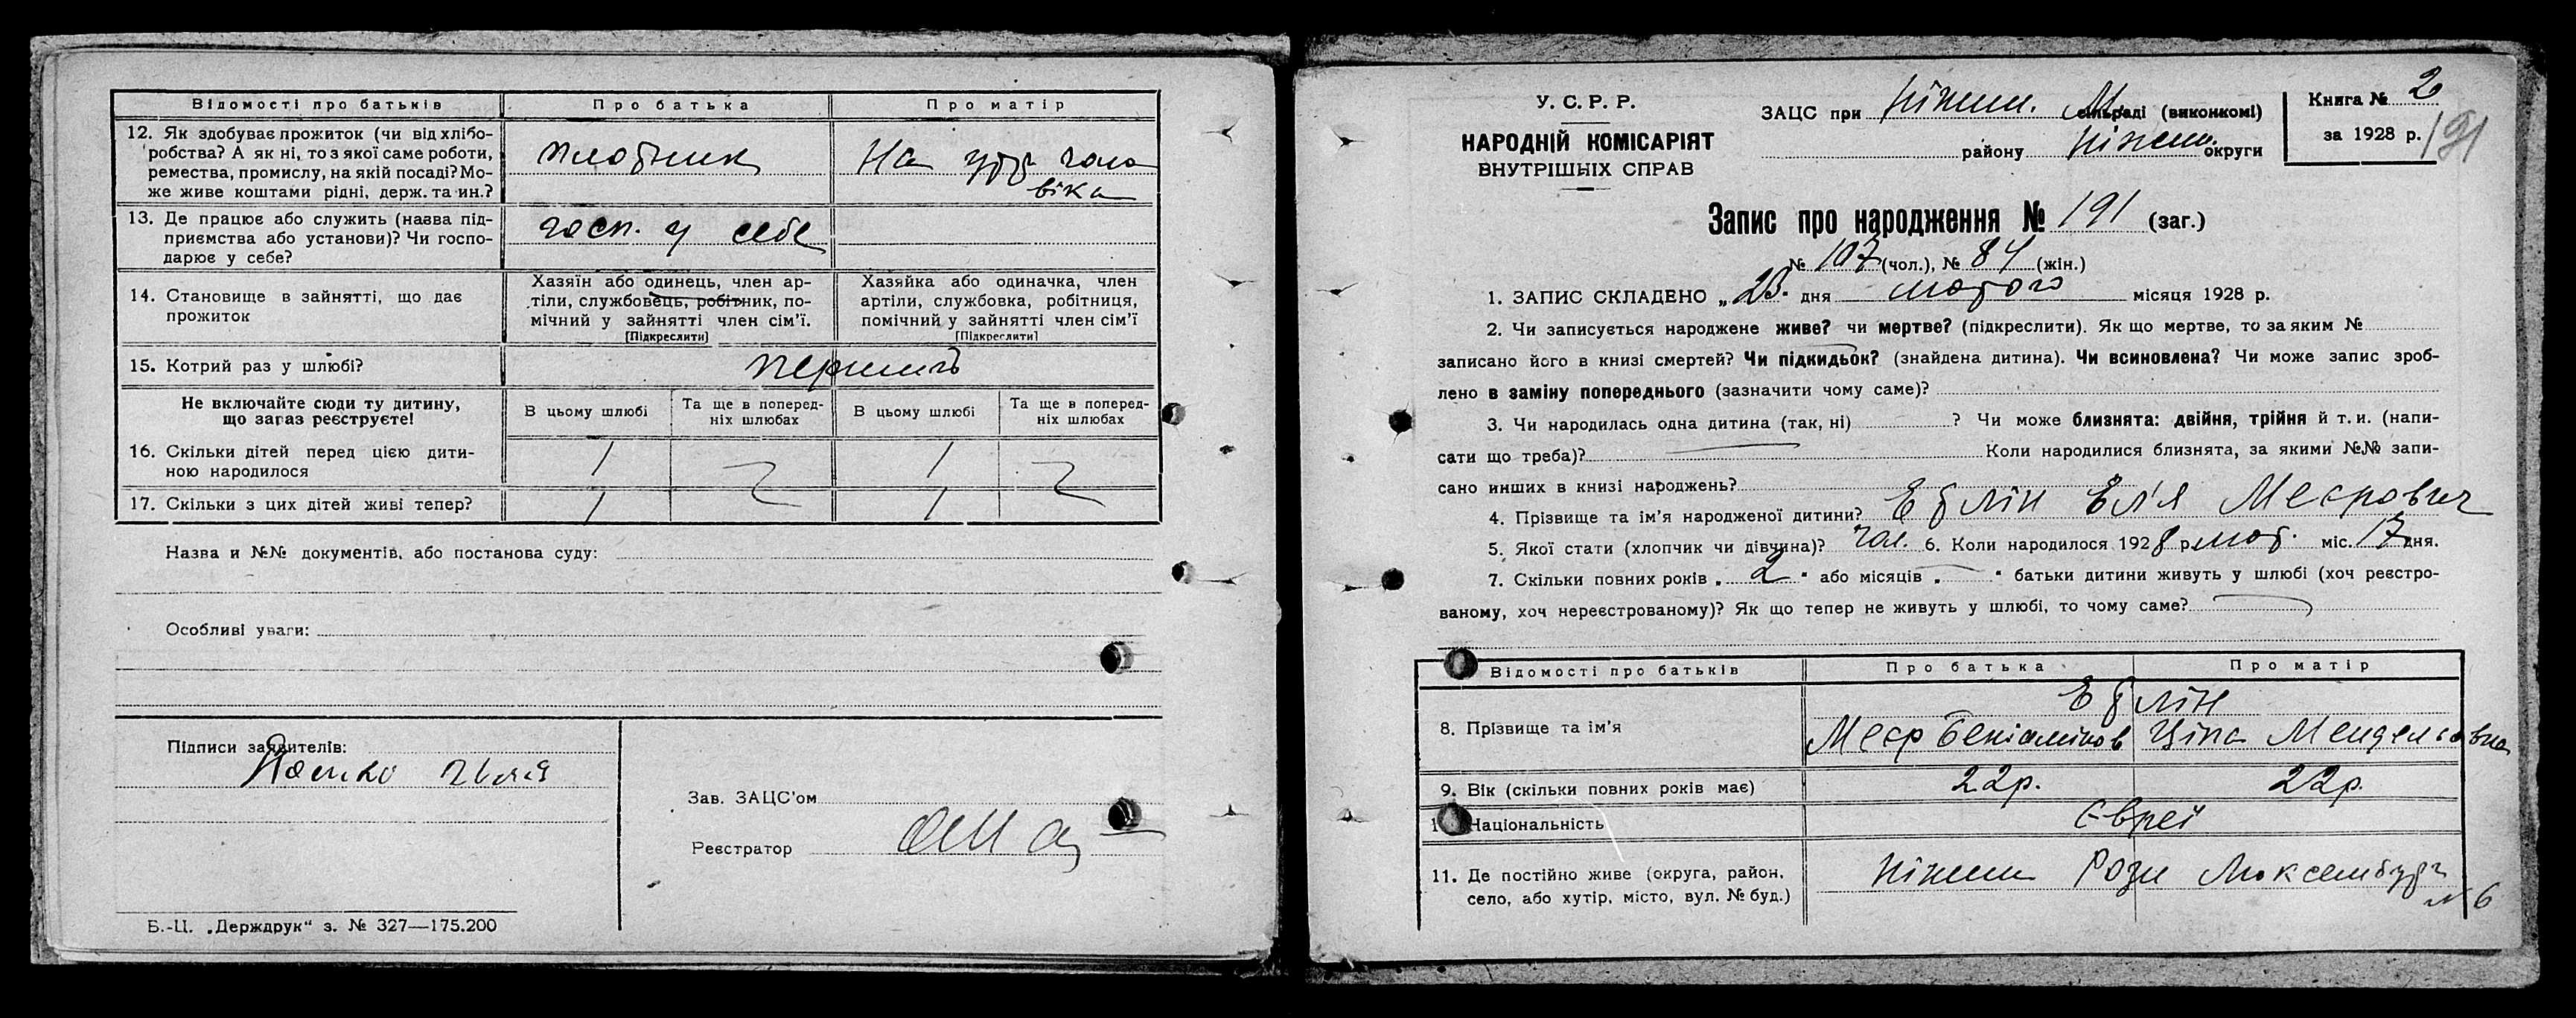 Відомості про батьків Про батька Про матір
12. Як здобуває прожиток (чи від хлібо-
робства? А як ні, то з якої саме роботи,
ремества, промислу, на якій посаді? Мо-
же живе коштами рідні, держ. та ин.?
плотник
На утр. чоло
віка
13. Де працює або служить (назва під-
приємства або установи)? Чи госпо-
дарює у себе?
госп. у себе
14. Становище в зайнятті, що дає
прожиток
Хазяїн або одинець, член ар-
тіли, службовець, робітник, по-
мічний у зайнятті член сім'ї.
[Підкреслити]
Хазяйка або одиначка, член
артіли, службовка, робітниця,
помічний у зайнятті член сім'ї
[Підкреслити]
15. Котрий раз у шлюбі?
Не включайте сюди ту дитину,
що зараз реєструєте!
В цьому шлюбі
Та ще в поперед-
ніх шлюбах
В цьому шлюбі
Та ще в поперед-
ніх шлюбах
16. Скільки дітей перед цією дити-
ною народилося
1 1
17. Скільки з цих дітей живі тепер?
1 1
Назва и №№ документів, або постанова суду:
Особливі уваги:
Підписи заявителів:
Зав. ЗАЦС'ом
Реєстратор
Б.-Ц. „Держдрук“ з. № 327—175.200
У. С. Р. Р.
НАРОДНІЙ КОМІСАРІЯТ
ВНУТРІШНІХ СПРАВ
ЗАЦС при Ніжин. М. сільраді (виконкомі)
району Ніжин. округи
Книга № 2
за 1928 р.
191
Запис про народження № 191 (заг.)
№ 107 (чол.), № 84 (жін.)
1. ЗАПИС СКЛАДЕНО „23“ дня лютого місяця 1928 р.
2. Чи записується народжене живе? чи мертве? (підкреслити). Як що мертве, то за яким №
записано його в книзі смертей? Чи підкидьок? (знайдена дитина). Чи всиновлена? Чи може запис зроб-
лено в заміну попереднього (зазначити чому саме)?
3. Чи народилась одна дитина (так, ні) ? Чи може близнята: двійня, трійня й т. и. (напи-
сати що треба)? Коли народилися близнята, за якими №№ запи-
сано инших в книзі народжень?
4. Прізвище та ім'я народженої дитини? Етлін Ел'я Меєрович
5. Якої стати (хлопчик чи дівчина)? чол. 6. Коли народилося 1928 р. лют. міс. 17 дня.
7. Скільки повних років „ 2 “ або місяців „ “ батьки дитини живуть у шлюбі (хоч реєстро-
ваному, хоч нереєстрованому)? Як що тепер не живуть у шлюбі, то чому саме?
Відомості про батьків Про батька Про матір
8. Прізвище та ім'я
Етлін
Меєр Беніамінов Ціпа Менделевна
9. Вік (скільки повних років має) 22р. 22р.
Національність євреї
11. Де постійно живе (округа, район,
село, або хутір, місто, вул. № буд.)
Ніжин Рози Люксембург
№ 6